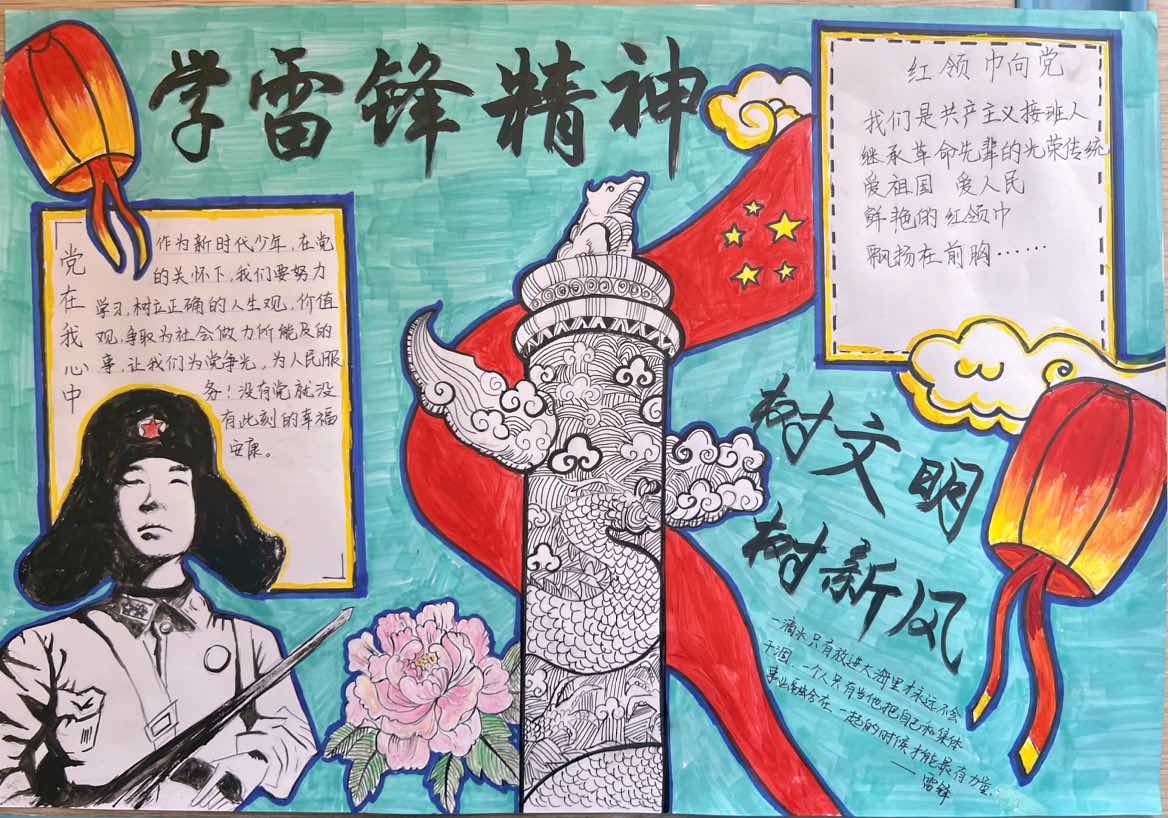 学雷锋精神
党在我心中
作为新时代少年，在党
的关怀下，我们要努力
学习，树立正确的人生观，价值
观，争取为社会做力所能及的
事，让我们为党争光，为人民服
务！没有党就没
有此刻的幸福
安康。
红领巾向党
我们是共产主义接班人
继承革命先辈的光荣传统
爱祖国 爱人民
鲜艳的红领巾
飘扬在前胸……
树文明
树新风
一滴水只有放进大海里才永远不会
干涸，一个人只有当他把自己和集体
事业融合在一起的时候才能最有力量。
——雷锋